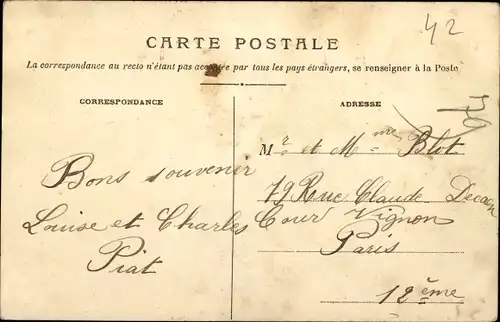 42
CARTE POSTALE
La correspondance au recto n'étant pas acceptée par tous les pays étrangers, se renseigner à la Poste
CORRESPONDANCE
Bons souvenir
Louise et Charles
Piat
ADRESSE
Mr et Mme Blot
79 Rue Claude Decaen
Cour Vignon
Paris
12ème